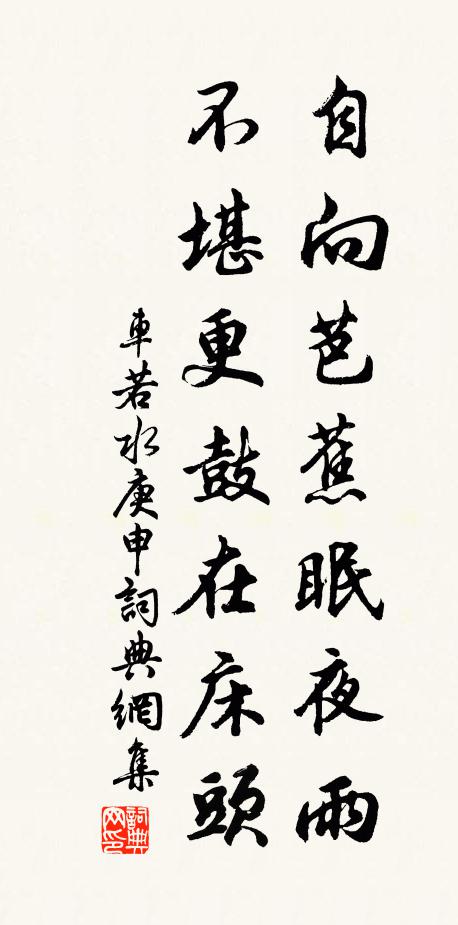 自向芭蕉眠夜雨
不堪更鼓在床頭
車若水庚申詞典網集
詞典网印